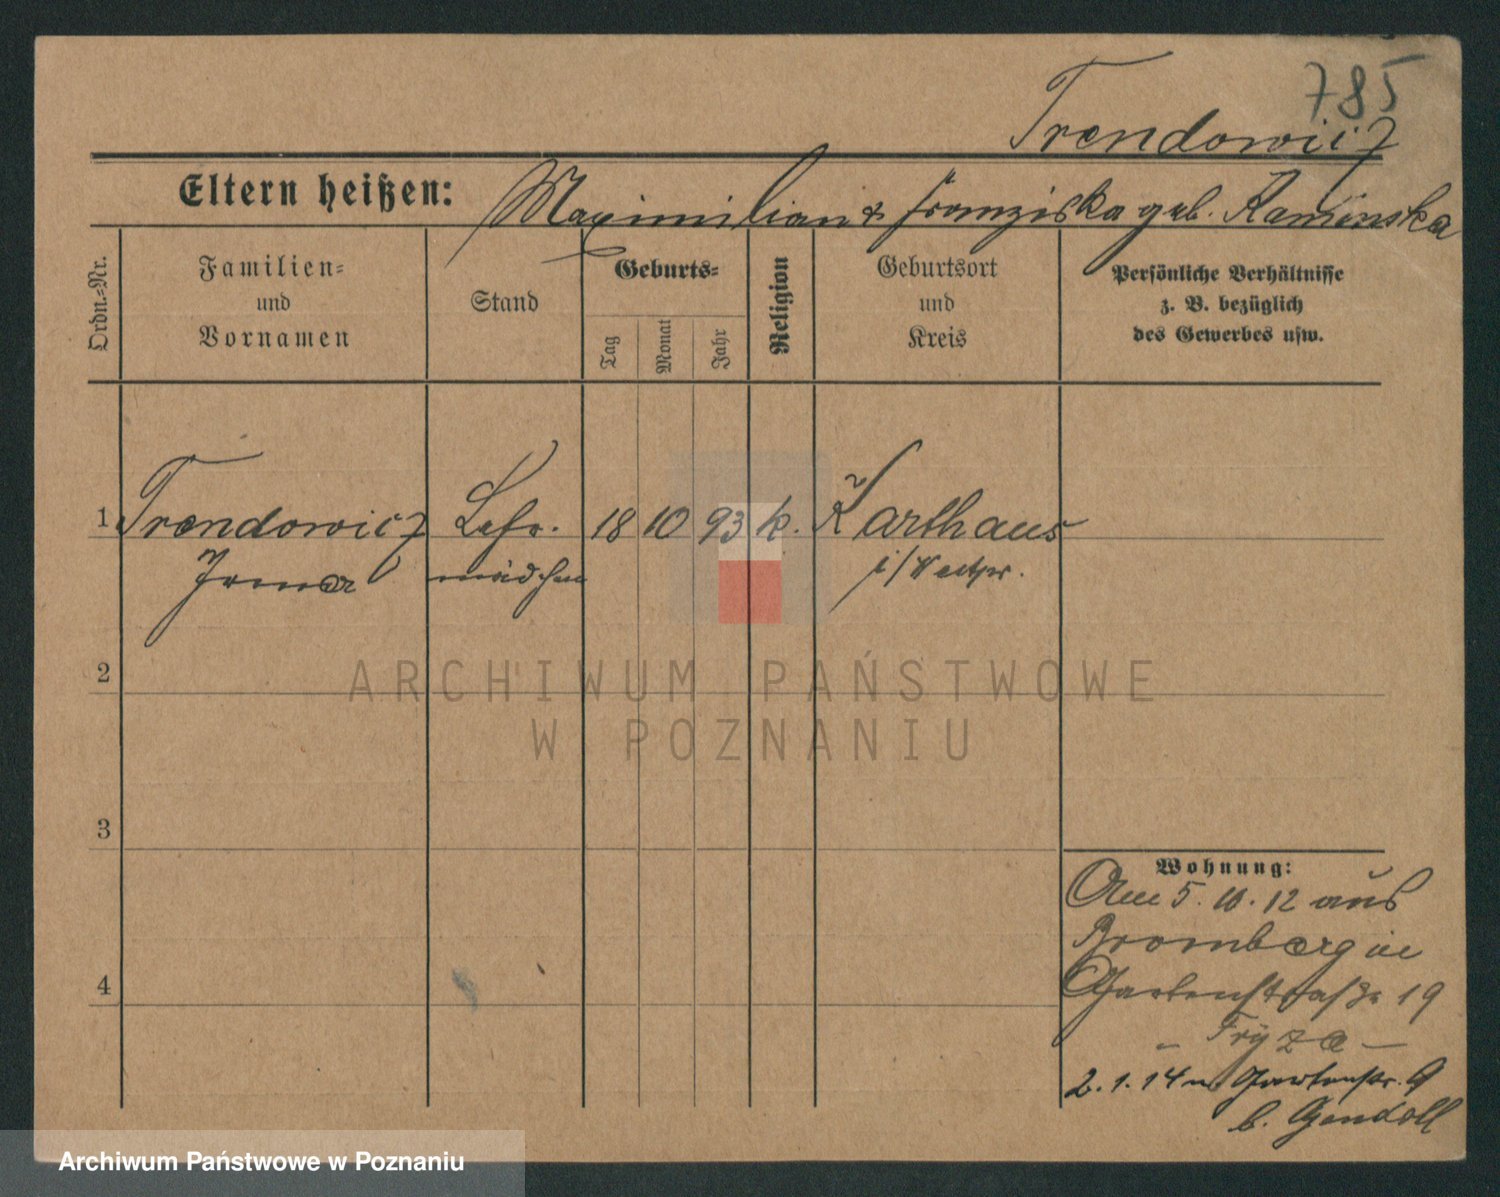 785
Trendowicz
Eltern heißen: Maximilian & Franziska geb. Kaminska
Ordn.-Nr.
Familien-
und
Vornamen
Stand
Geburts-
Tag
Monat
Jahr
Religion
Geburtsort
und
Kreis
Persönliche Verhältnisse
z. B. bezüglich
des Gewerbes usw.
1 Trendowicz Lehr- 18 10 93 k. Karthaus
Irena mädchen i/Westpr.
ARCHIWUM PAŃSTWOWE
W POZNANIU
2
3
4
Wohnung:
Am 5. 10. 12 aus
Bromberg in
Gartenstraße 19
- Fryza -
2.1.14 n Gartenstr. 9
b. Gendoll
Archiwum Państwowe w Poznaniu